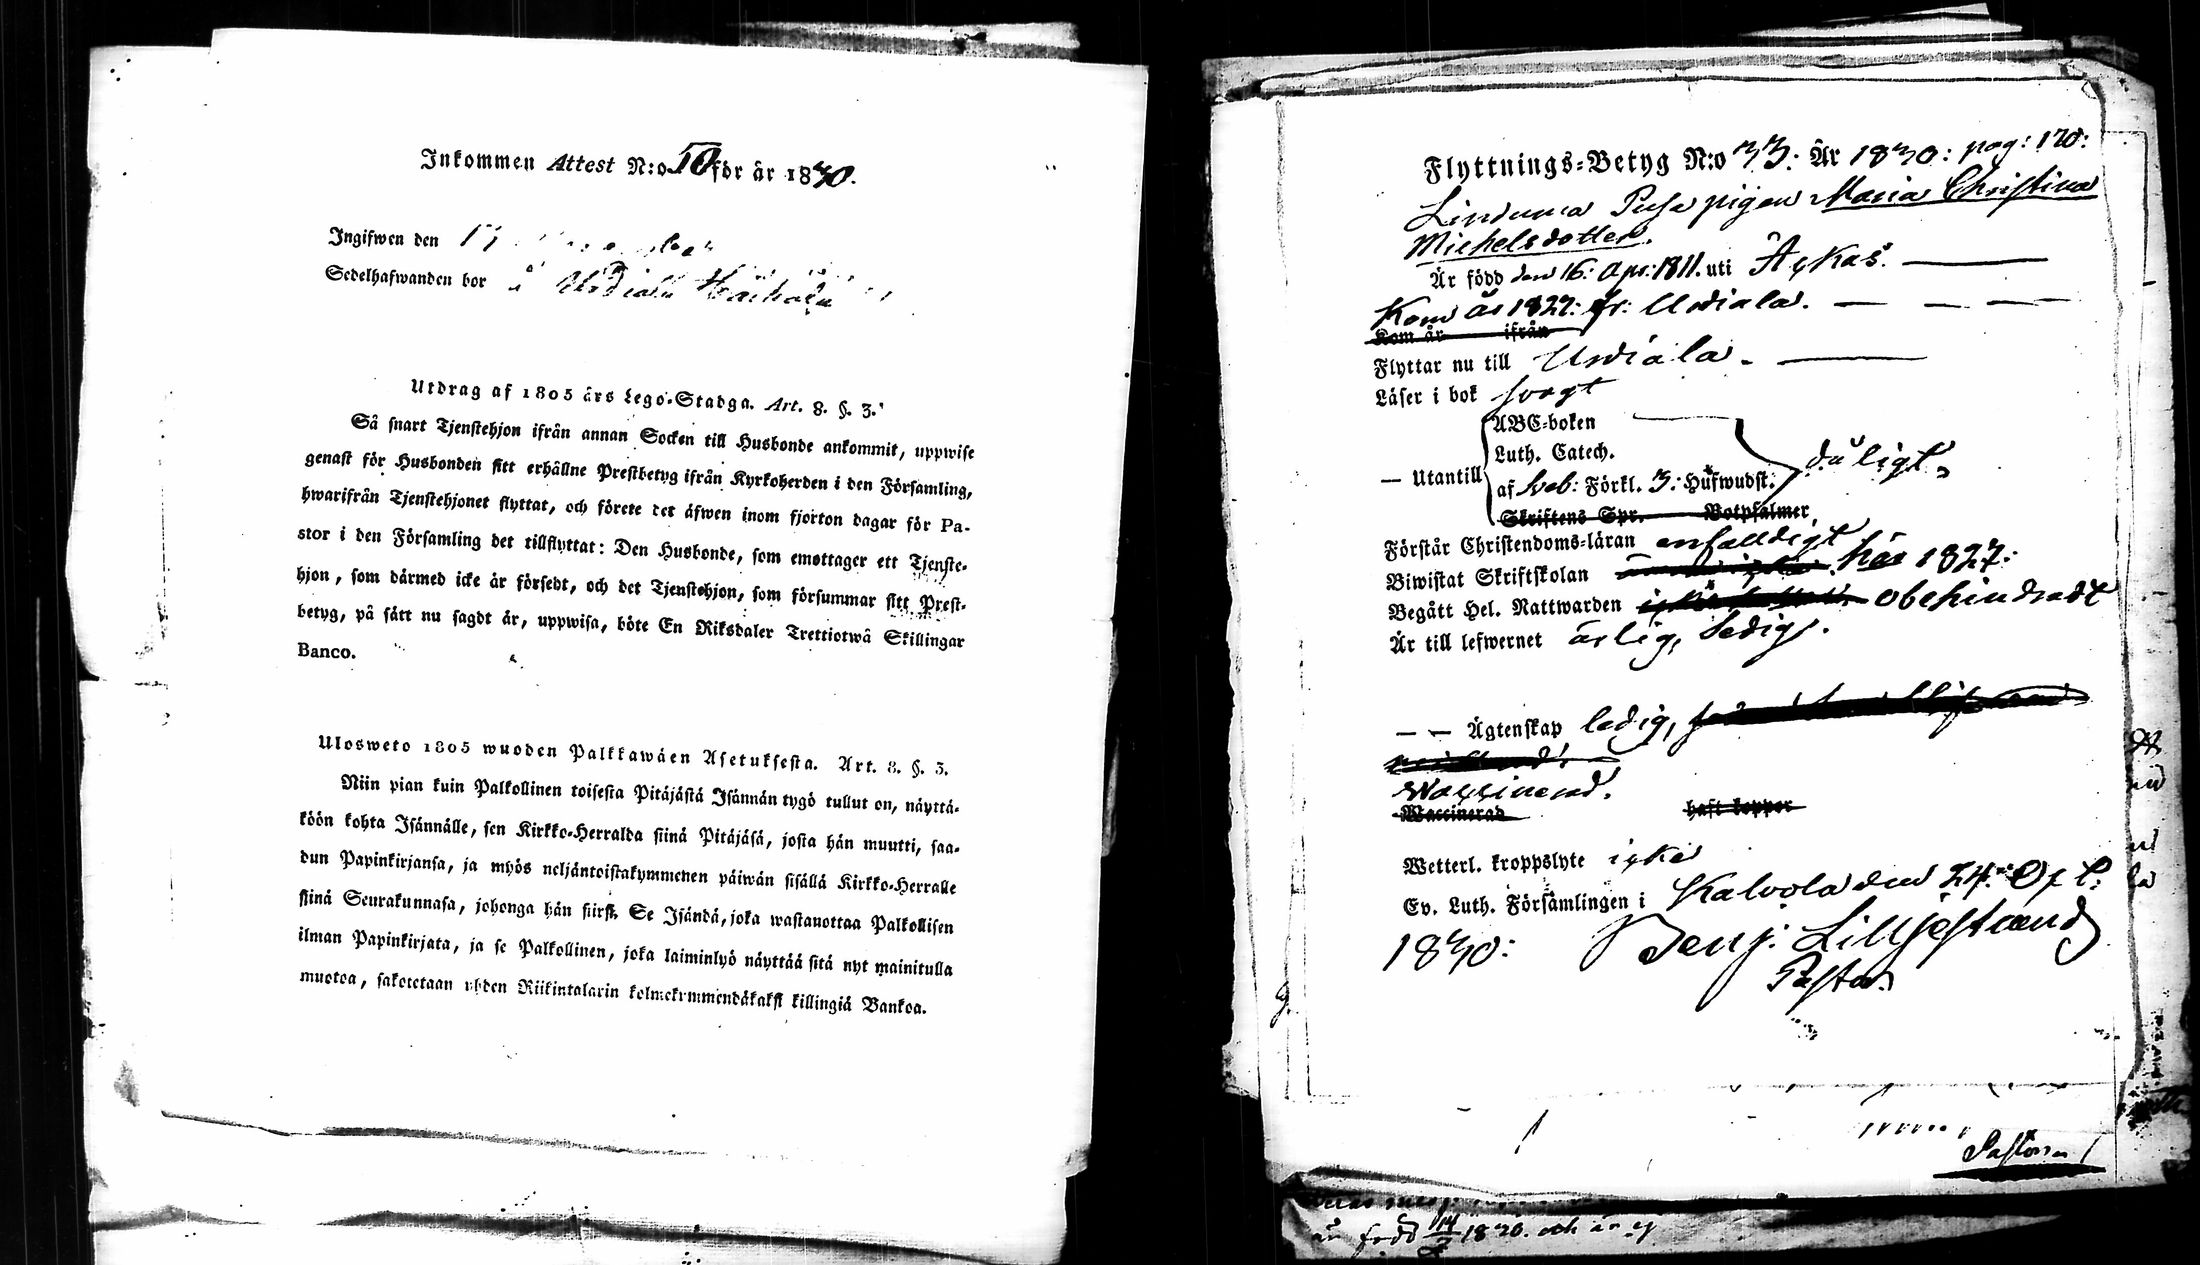 Inkommen Attest N:o 10 för år 1830.
Ingifwen den
Sedelhafwanden bor å Urdiala
Utdrag af 1805 års Lego-Stadga. Art. 8. §. 3.
Så snart Tjenstehjon ifrån annan Socken till Husbonde ankommit, uppwise
genast för Husbonden sitt erhållne Prestbetyg ifrån Kyrkoherden i den Församling,
hwarifrån Tjenstehjonet flyttat, och förete det äfwen inom fjorton dagar för Pa-
stor i den Församling det tillflyttat: Den Husbonde, som emottager ett Tjenste-
hjon, som därmed icke är försedt, och det Tjenstehjon, som försummar sitt Prest-
betyg, på sätt nu sagdt är, uppwisa, böte En Riksdaler Trettiotwå Skillingar
Banco.
Ulosweto 1805 wuoden Palkkawäen Asetuksesta. Art. 8. §. 3.
Niin pian kuin Palkollinen toisesta Pitäjästä Isännän tygö tullut on, näyttä-
köön kohta Isännälle, sen Kirkko-Herralda siinä Pitäjäsä, josta hän muutti, saa-
dun Papinkirjansa, ja myös neljäntoistakymmenen päiwän sisällä Kirkko-Herralle
siinä Seurakunnasa, johonga hän siirsi. Se Isändä, joka wastanottaa Palkollisen
ilman Papinkirjata, ja se Palkollinen, joka laiminlyö näyttää sitä nyt mainitulla
muotoa, sakotetaan yhden Riikintalarin kolmekymmendäkaksi killingiä Bankoa.
Flyttnings-Betyg N:o 33: År 1830: pag: 170:
pigan Maria Christina
Michelsdotter.
Är född den 16: Apr: 1811. uti Ackas.
Kom år 1827: fr: Urdiala.
Kom år ifrån
Flyttar nu till Urdiala.
Läser i bok svagt
ABC-boken
Luth. Catech.
— Utantill af Sveb: Förkl. 3: Hufwudst. dåligt.
Skriftens Spr. Botpsalmer,
Förstår Christendoms-läran enfalldigt
Biwistat Skriftskolan här 1827:
Begått Hel. Nattwarden obehindradt
Är till lefwernet ärlig, sedig.
— — Ägtenskap ledig,
Waccinerad.
Waccinerad haft koppor
Wetterl. kroppslyte icke
Ev. Luth. Församlingen i Kalvola den 24: Oct:
1830: Benj: Lilljestrand
Pastor.
Pastorn
är född 1820. och är ej